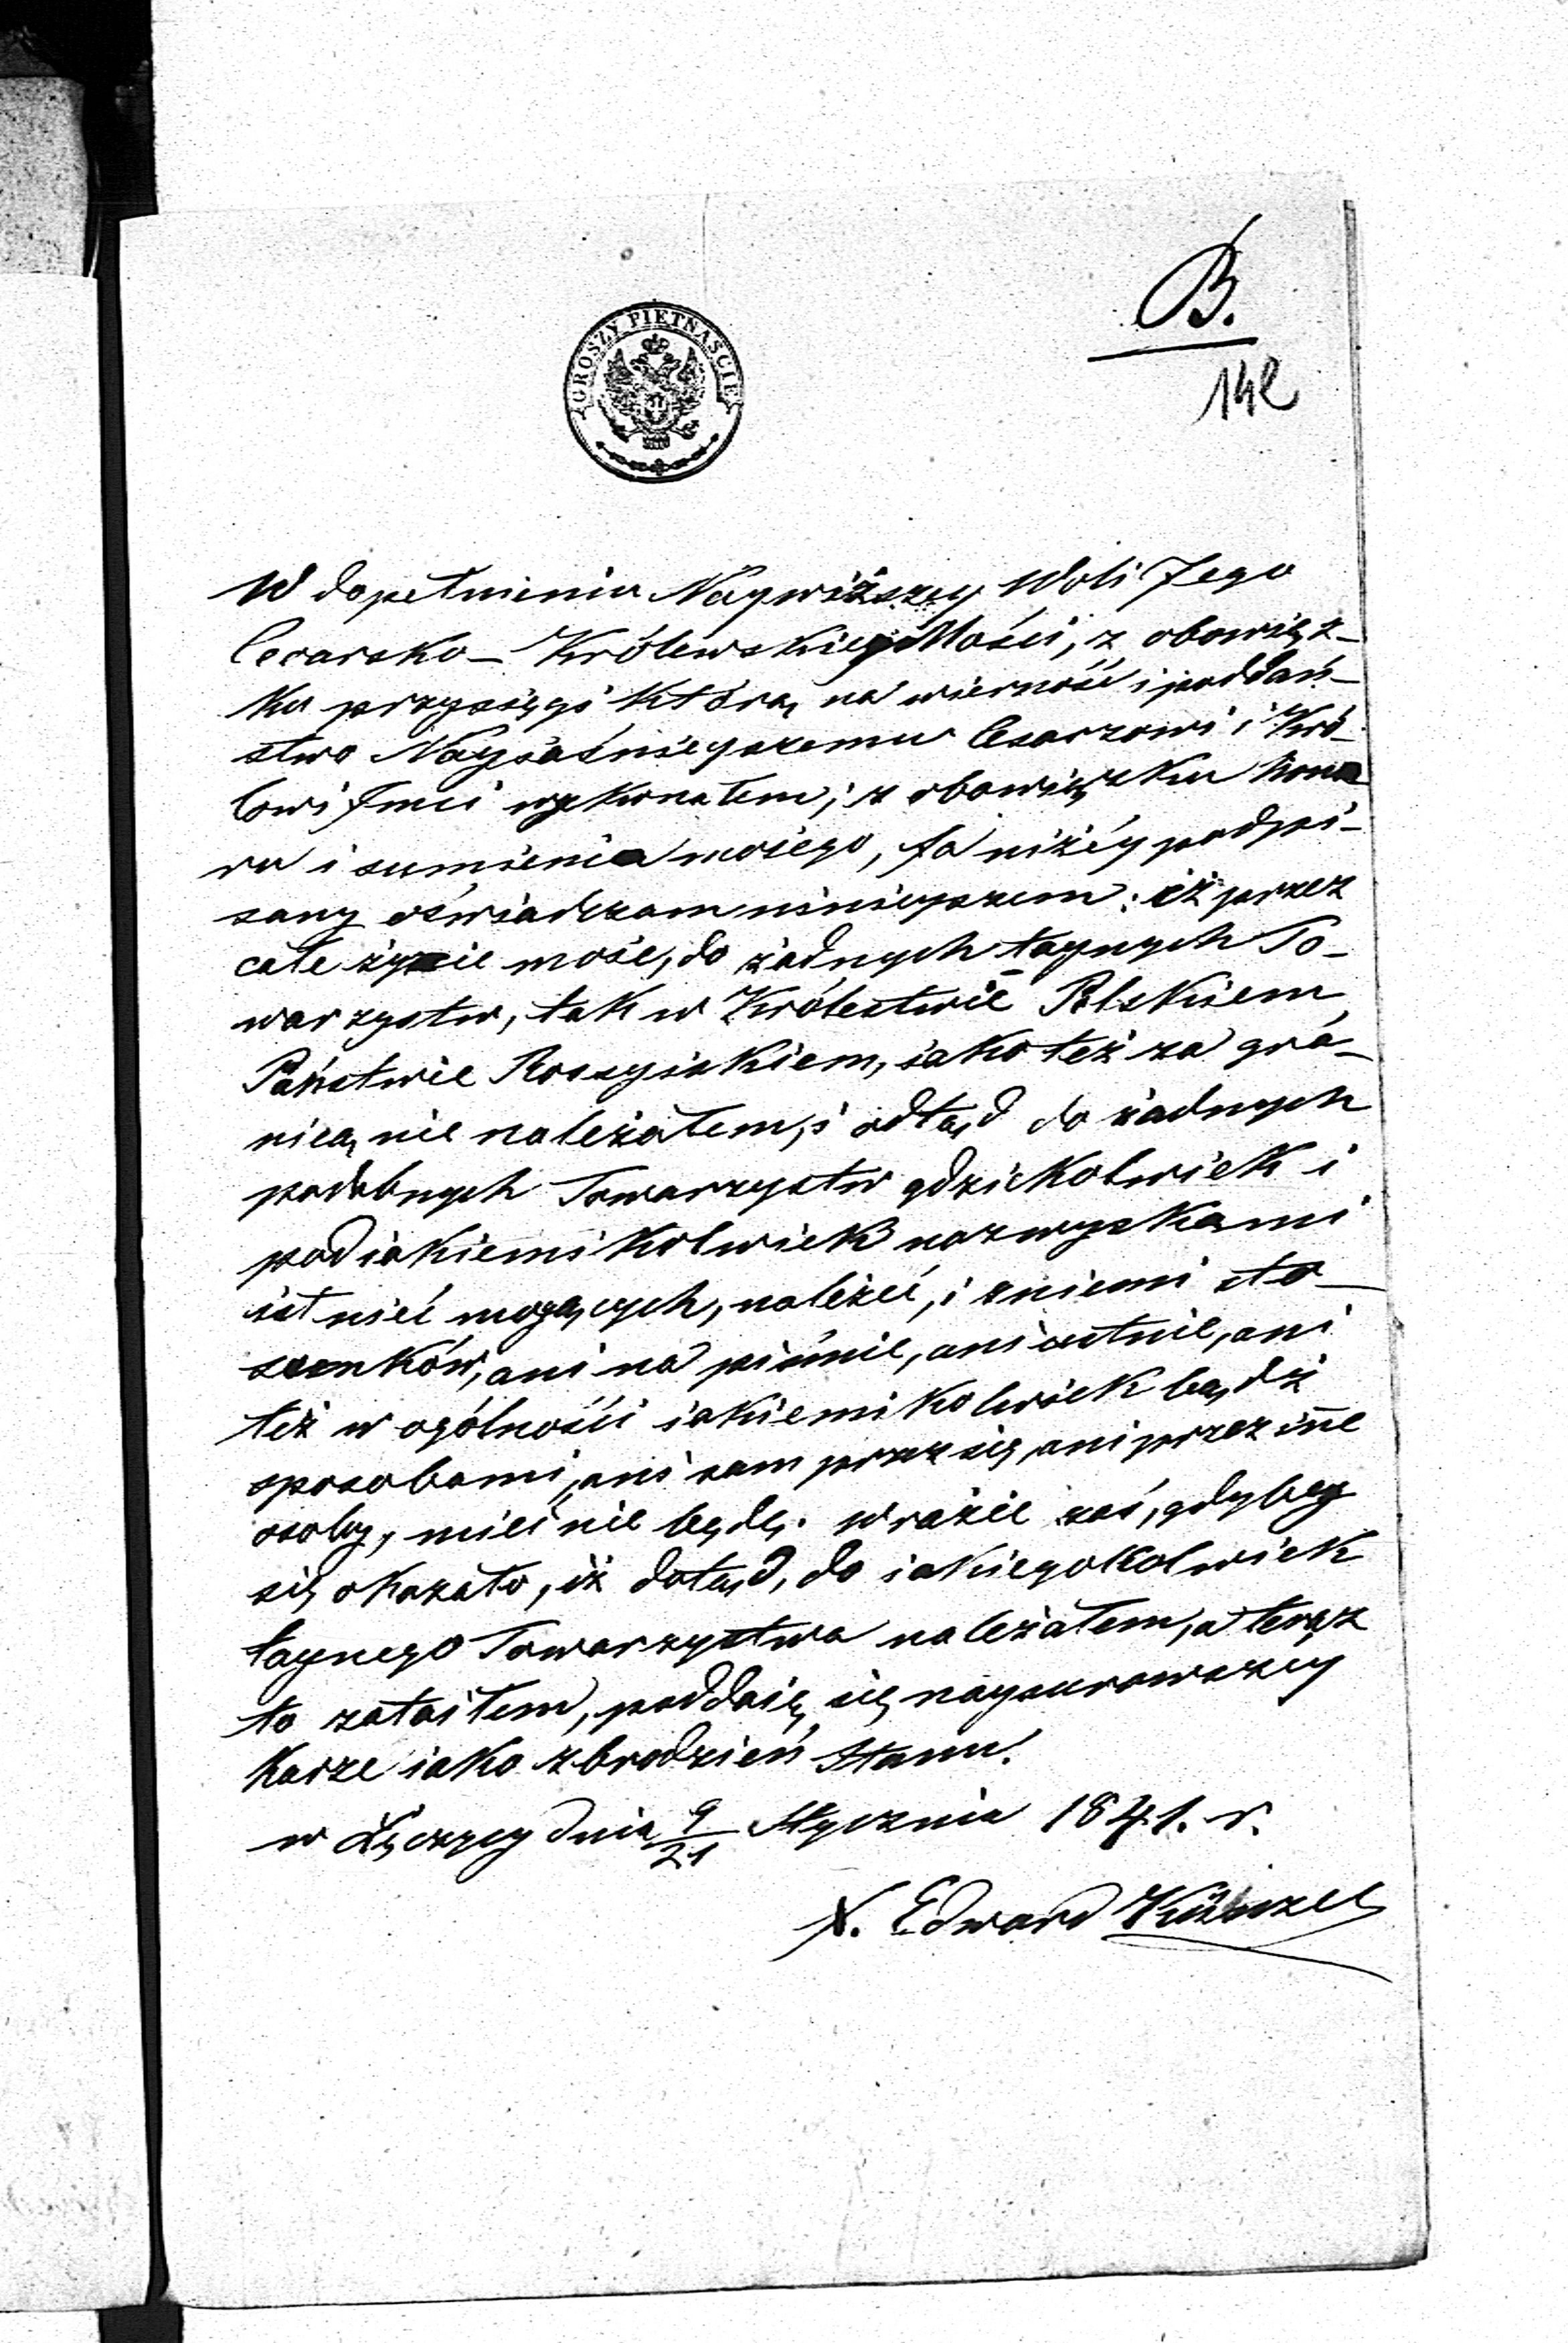 B.
142
GROSZY PIĘTNAŚCIE
W dopełnieniu Naywiższey Woli Jego
Cesarsko-Królewskiey Mości, z obowiąz-
ku przysięgi którą na wierność i poddań-
stwo Nayiaśnieyszemu Cesarzowi i Kró-
lowi Jmci wykonałem; z obowiązku hono
ru i sumienia moiego, Ja niżéy podpi-
sany oświadczam ninieyszem: iż przez
całe życie moie, do żadnych taynych To-
warzystw, tak w Królestwie Polskiem,
Państwie Rossyiskiem, iako też za gra-
nicą nie należałem, i odtąd do żadnych
podobnych Towarzystw gdziekolwiek i
pod iakiemikolwiek nazwyskami
istnieć mogących, należeć, i z niemi sto-
sunków, ani na piśmie, ani ustnie, ani
też w ogólności iakiemikolwiek bądź
sposobami, ani sam przez się, ani przez iñe
osoby, mieć nie będę. w razie zaś, gdyby
się okazało, iż dotąd, do iakiegokolwiek
taynego Towarzystwa należałem, a teraz
to zataiłem, poddaię się naysurowszey
karze iako zbrodzień Stanu.
w Łęczycy dnia 9/21 Stycznia 1841. r.
X. Edward